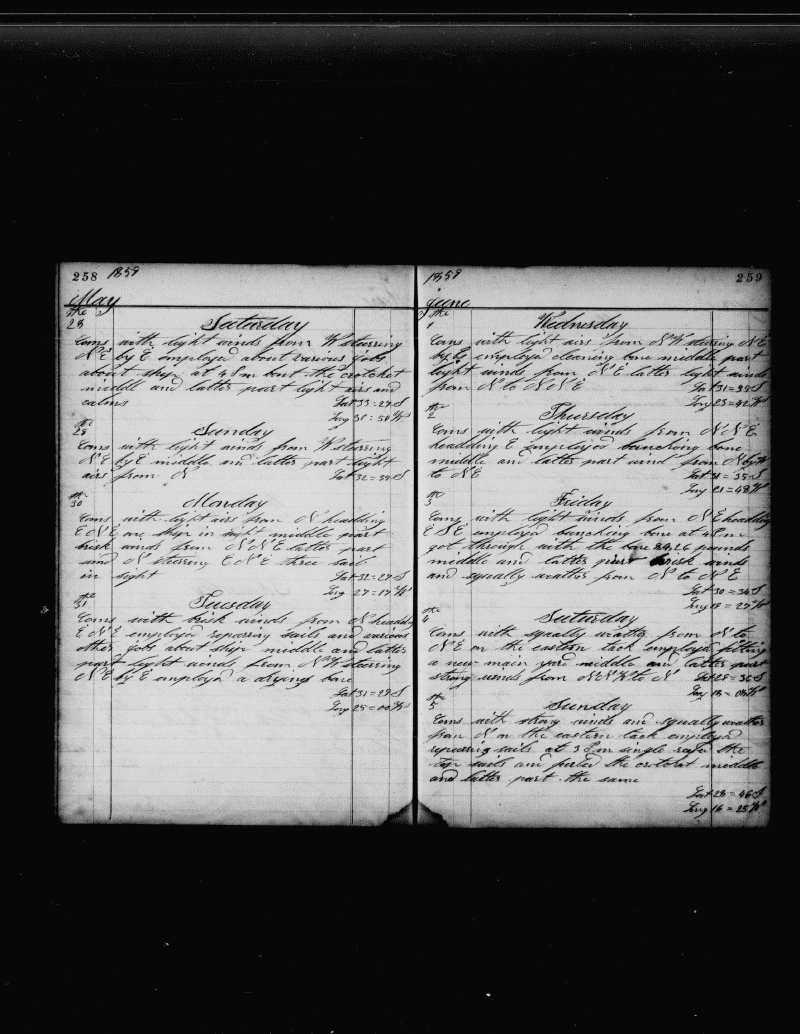 258 1859
May
the
28 Saturday
Coms with light winds from W stearing
N E by E employed about various jobs
about ship at 4 P m bent the crotchet
middle and latter part light airs and
calms Lat 33=27 S
Long 31=50 W
the
29 Sunday
Coms with light winds from W stearing
N E by E middle and latter part light
airs from N Lat 32=39 S
the
30 Monday
Coms with light airs from N headding
E N E one ship in sight middle part
brisk winds from N N E latter part
wind N stearing E N E three sail
in sight Lat 32=29 S
Long 27=17 W
the
31 Tuesday
Coms with brisk winds from N headding
E N E employed reparring sails and various
other jobs about ship middle and latter
part light winds from N W stearing
N E by E employed a drying bone
Lat 31=29 S
Long 25=00 W
1859 259
June
the
1 Wednesday
Coms with light airs from N W stearing N E
by E employed cleaning bone middle part
light winds from N E latter light winds
from N to N N E Lat 31=35 S
Long 23=42 W
the
2 Thursday
Coms with light winds from N N E
headding E employed bunching bone
middle and latter part wind from N by W
to N E Lat 31=35 S
Long 21=48 W
the
3 Friday
Coms with light winds from N E headding
E S E employed bunching bone at 4 P m
got through with the bone pounds
middle and latter part brisk winds
and squally weather from N to N E
Lat 30=34 S
Long 19=27 W
the
4 Saturday
Coms with squally weather from N to
N E on the eastern tack employed fitting
a new main yard middle and latter part
strong winds from N N W to N Lat 29=36 S
Long 18=08 W
the
5 Sunday
Coms with strong winds and squally weather
from N on the eastern tack employed
reparring sails at 3 P m single reefed the
top sails and furled the crotchet middle
and latter part the same
Lat 28=46 S
Long 16=25 W